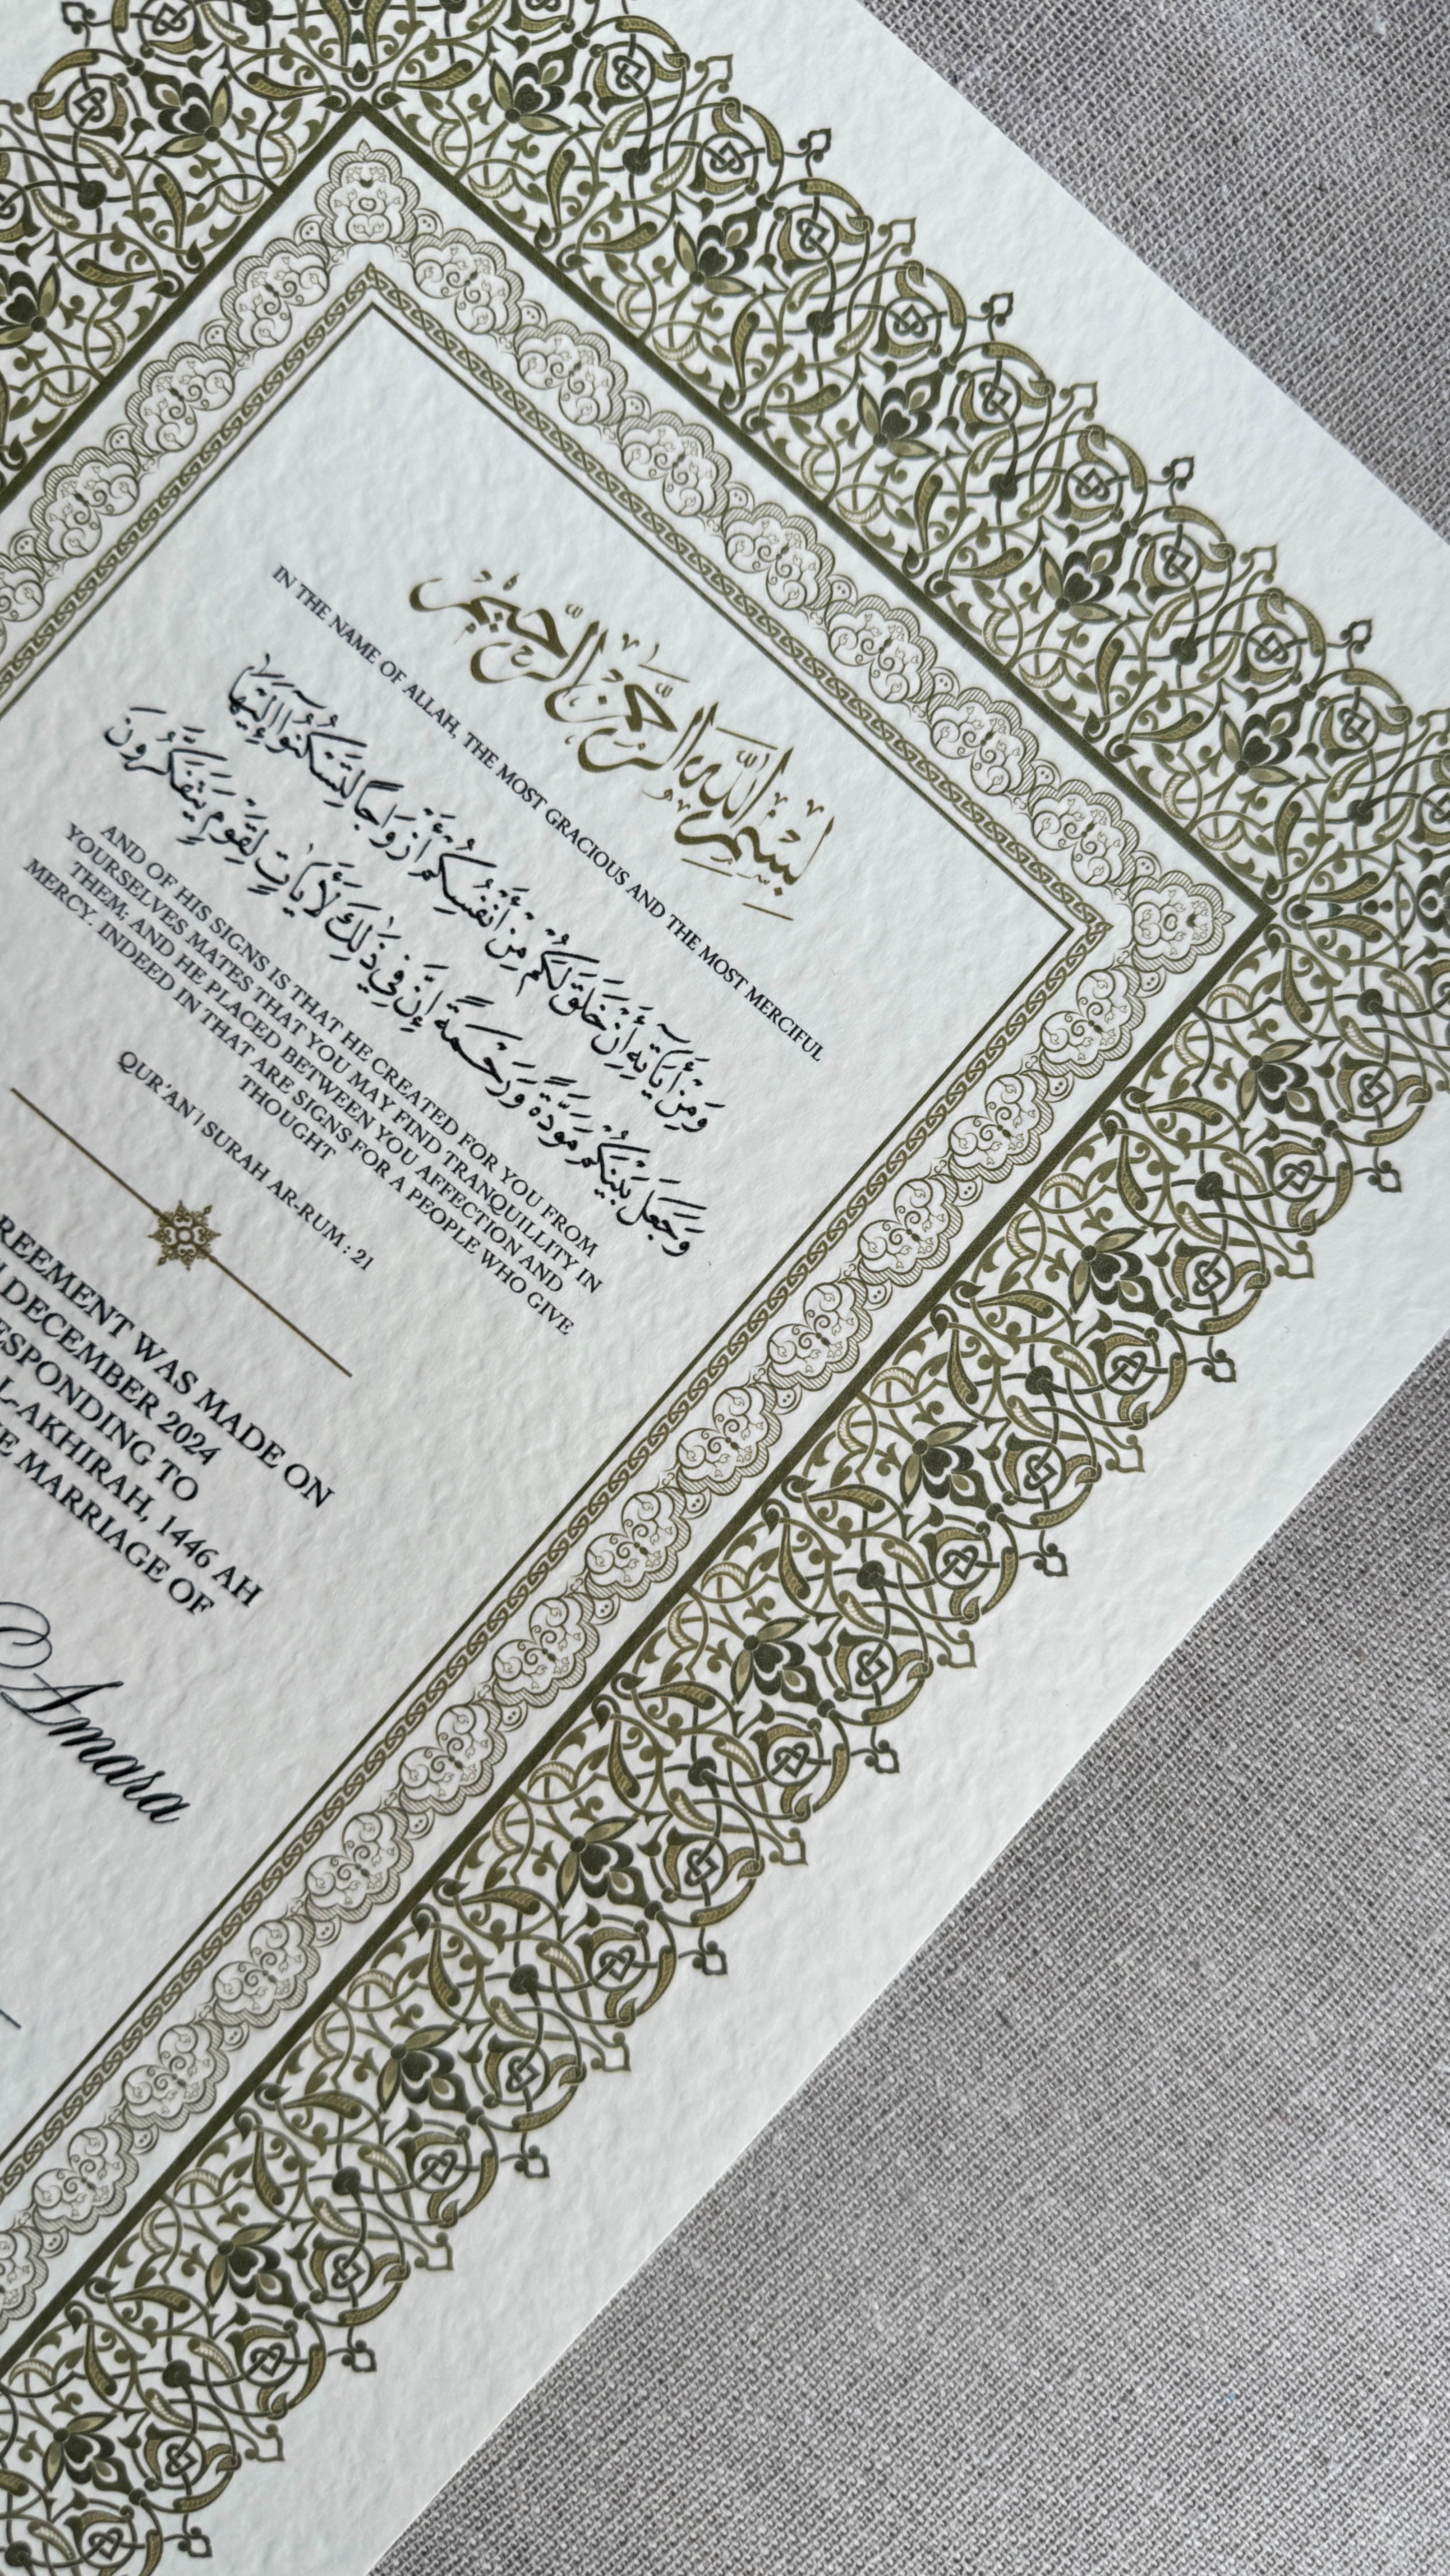 بِسْمِ اللَّهِ الرَّحْمَٰنِ الرَّحِيمِ
IN THE NAME OF ALLAH, THE MOST GRACIOUS AND THE MOST MERCIFUL
وَمِنْ آيَاتِهِ أَنْ خَلَقَ لَكُم مِنْ أَنْفُسِكُمْ أَزْوَاجًا لِتَسْكُنُوا إِلَيْهَا
وَجَعَلَ بَيْنَكُمْ مَوَدَّةً وَرَحْمَةً إِنَّ فِي ذَٰلِكَ لَأَيَاتٍ لِقَوْمٍ يَتَفَكَّرُونَ
AND OF HIS SIGNS IS THAT HE CREATED FOR YOU FROM
YOURSELVES MATES THAT YOU MAY FIND TRANQUILLITY IN
THEM; AND HE PLACED BETWEEN YOU AFFECTION AND
MERCY. INDEED IN THAT ARE SIGNS FOR A PEOPLE WHO GIVE
THOUGHT
QUR'AN | SURAH AR-RUM : 21
REEMENT WAS MADE ON
DECEMBER 2024
ESPONDING TO
L-AKHIRAH, 1446 AH
E MARRIAGE OF
Amara